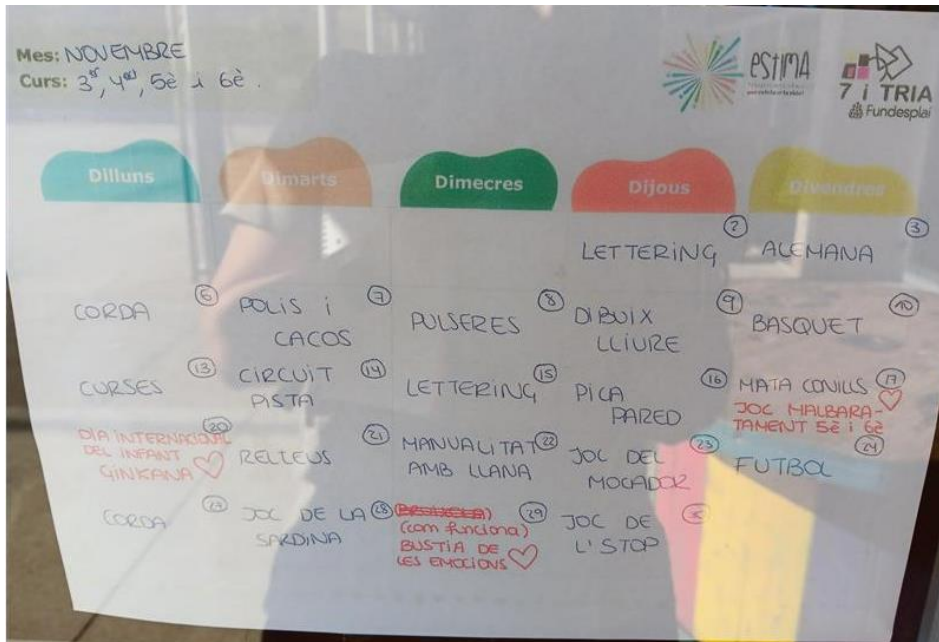 Mes: NOVEMBRE
Curs: 3er, 4art, 5è i 6è.
estima
7 i TRIA
Fundesplai
Dilluns
Dimarts
Dimecres
Dijous
Divendres
2
LETTERING
3
ALEMANA
6
CORDA
7
POLIS i
CACOS
8
PULSERES
9
DIBUIX
LLIURE
10
BASQUET
13
CURSES
14
CIRCUIT
PISTA
15
LETTERING
16
PICA
PARED
17
MATA CONILLS
JOC MALBARA-
TAMENT 5è i 6è
20
DIA INTERNACIONAL
DEL INFANT
GINKANA
21
RELLEUS
22
MANUALITAT
AMB LLANA
23
JOC DEL
MOCADOR
24
FUTBOL
27
CORDA
28
JOC DE LA
SARDINA
29
(com funciona)
BUSTIA DE
LES EMOCIONS
JOC DE
L'STOP